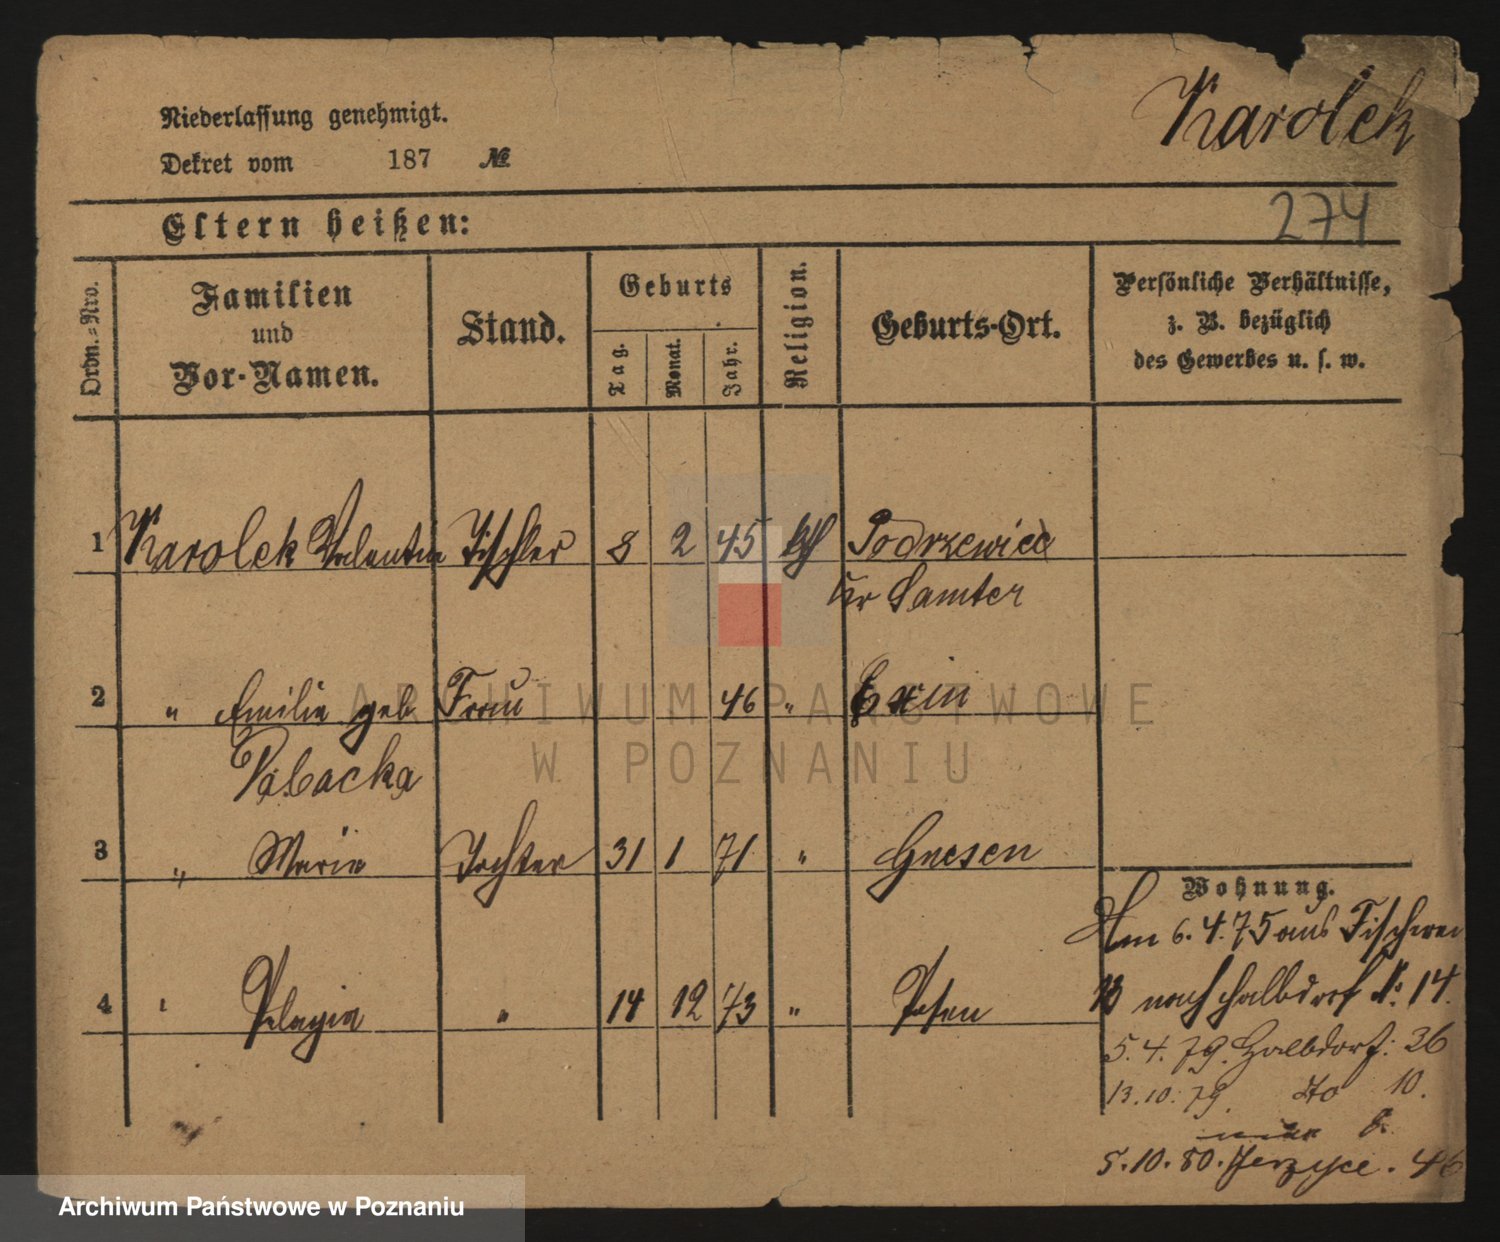 Niederlassung genehmigt.
Karolek
Dekret vom 187 №
274
Eltern heißen:
Ordn.=Nro.
Familien
und
Vor-Namen.
Stand.
Geburts
Tag.
Monat.
Jahr.
Religion.
Geburts-Ort.
Persönliche Verhältnisse,
z. B. bezüglich
des Gewerbes u. s. w.
1 Karolek Valentin Tischler 8 2 45 kth Podrzewice
Kr Samter
2 " Emilie geb Frau 46 " Exin
3 " Marie Tochter 31 1 71 " Gnesen
Wohnung.
Am 6.4.75 aus Fischerei
4 " Pelagia " 14 12 73 " Posen
13 nach Halbdorf № 14.
5.4.79. Halbdorf: 36
13.10.79. dto 10.
5.10.80. Jerzyce. 46
ARCHIWUM PAŃSTWOWE
W POZNANIU
Archiwum Państwowe w Poznaniu